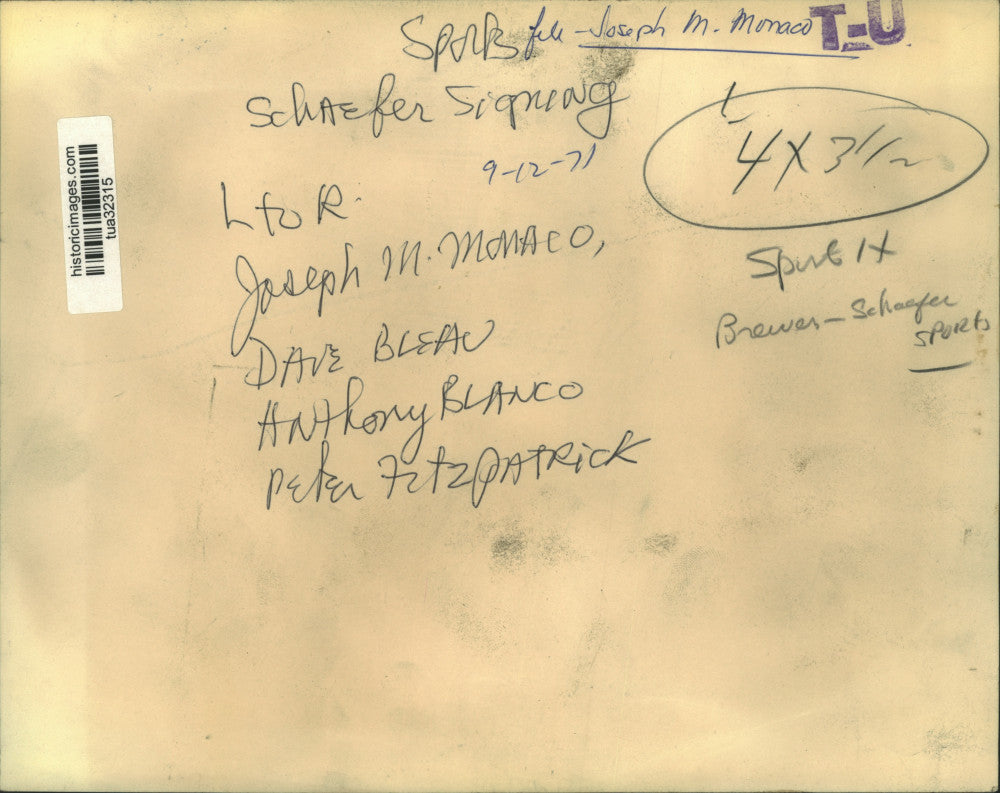 Sports file - Joseph M. Monaco T-U
Schaefer Signing
9-12-71
4 X 3 1/2
L to R.
Joseph M. Monaco,
Sports 1X
Brewer - Schaefer
SPORTS
DAVE BLEAU
Anthony BLANCO
Peter FitzpATRICK
historicimages.com
tua32315